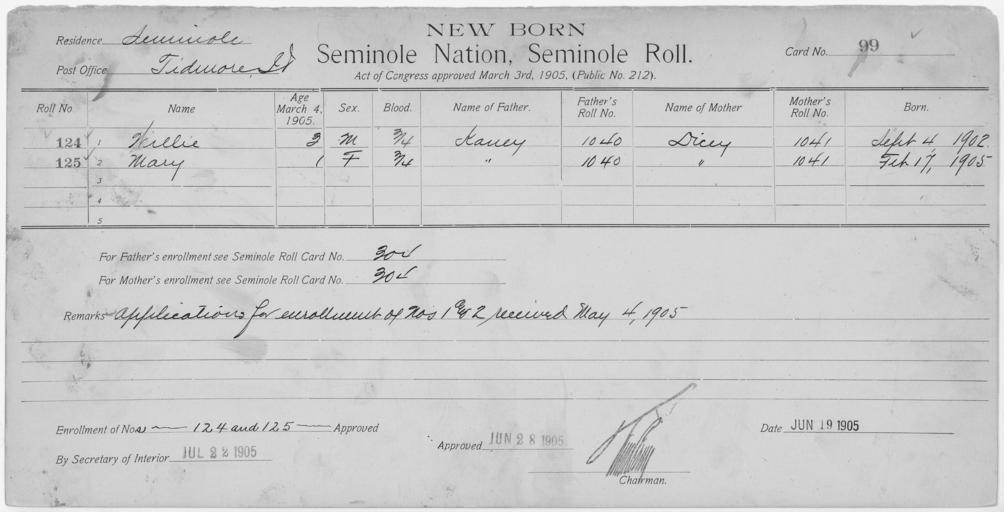 NEW BORN
Residence Seminole
Seminole Nation, Seminole Roll.
Card No. 99
Post Office Tidmore, I T
Act of Congress approved March 3rd, 1905, (Public No. 212).
Roll No Name Age March 4, 1905. Sex. Blood. Name of Father. Father's Roll No. Name of Mother Mother's Roll No. Born.
124 1 Willie 3 M 3/4 Kaney 1040 Dicey 1041 Sept 4, 1902.
125 2 Mary 1 F 3/4 " 1040 " 1041 Feb 17, 1905
3
4
5
For Father's enrollment see Seminole Roll Card No. 304
For Mother's enrollment see Seminole Roll Card No. 304
Remarks Applications for enrollment of Nos 1 & 2, received May 4, 1905
Enrollment of Nos 124 and 125 Approved
Date JUN 19 1905
Approved JUN 28 1905
By Secretary of Interior JUL 22 1905
Chairman.